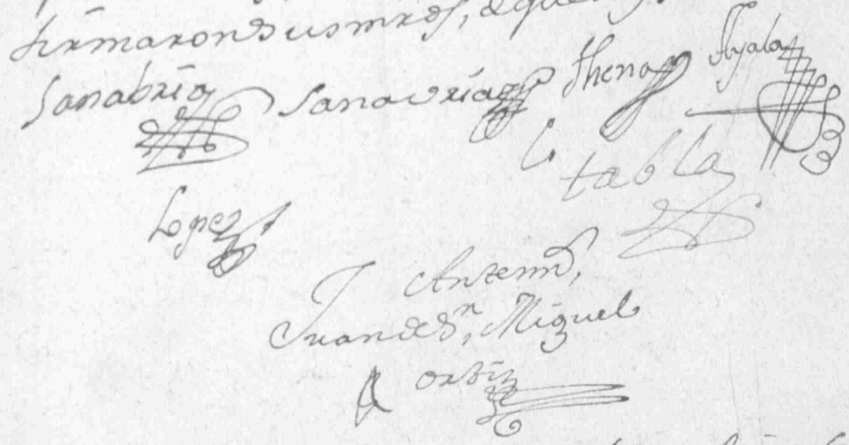 firmaron sus mrds, de que
Sanabria Sanavria thena Ayala
tabla
Lopez
Ante mi,
Juan de Sn. Miguel
ortiz